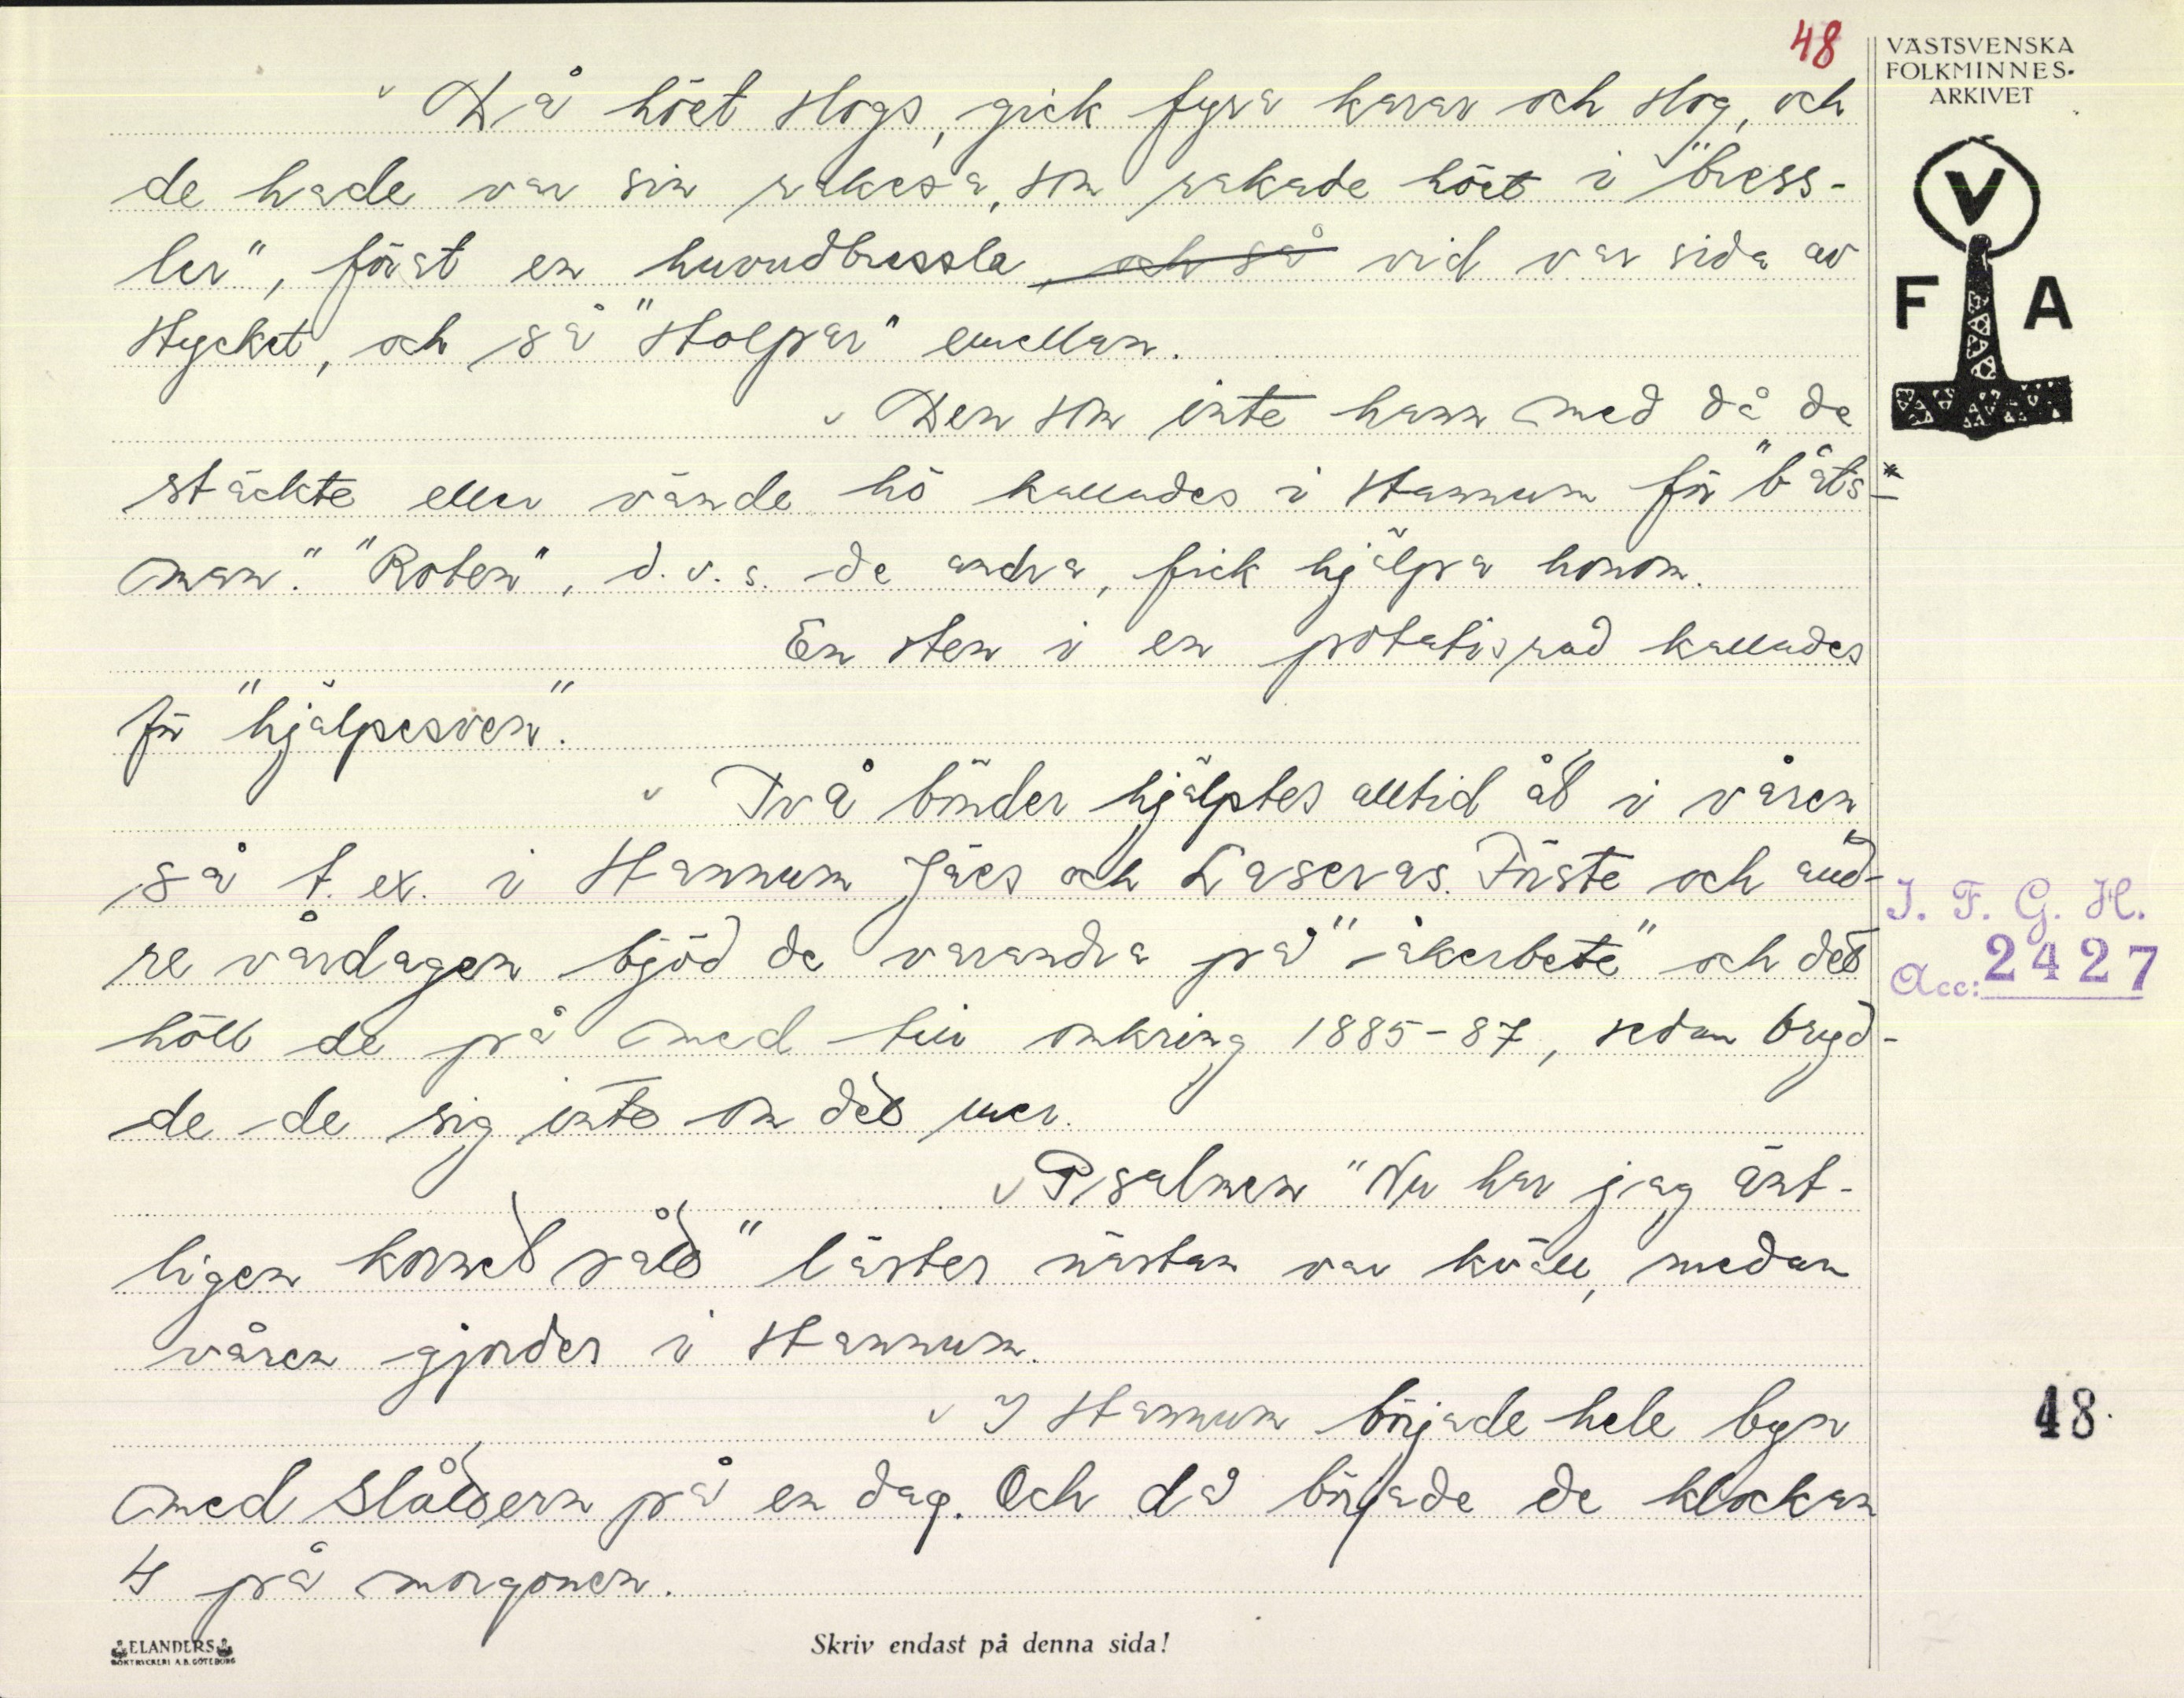 48
VÄSTSVENSKA
FOLKMINNES-
ARKIVET
Då höet slogs, gick fyra karar och slog, och
de hade var sin rakesa, som rakade höet i "bress-
ler", först en huvudbressla, och så vid var sida av
stycket, och så "stolpar" emellan.
Den som inte hann med då de
stäckte eller vände hö kallades i Stannum för "båts-
man". "Roten", d.v.s. de andra, fick hjälpa honom.
En sten i en potatisrad kallades
för "hjälpesven".
Två bönder hjälptes alltid åt i våren
så t.ex. i Stannum Jäes och Laseras. Förste och and-
re vårdagen bjöd de varandra på "åkerbete" och det
höll de på med till omkring 1885-87, sedan bryd-
de de sig inte om det mer.
Psalmen "Nu har jag änt-
ligen kornet sått" lästes nästan var kväll, medan
våren gjordes i Stannum.
I Stannum började hele byn
med slåttern på en dag. Och då började de klockan
4 på morgonen.
V
F A
I. F. G. H.
Acc: 2427
48.
ELANDERS
BOKTRYCKERI A.B. GÖTEBORG
Skriv endast på denna sida!